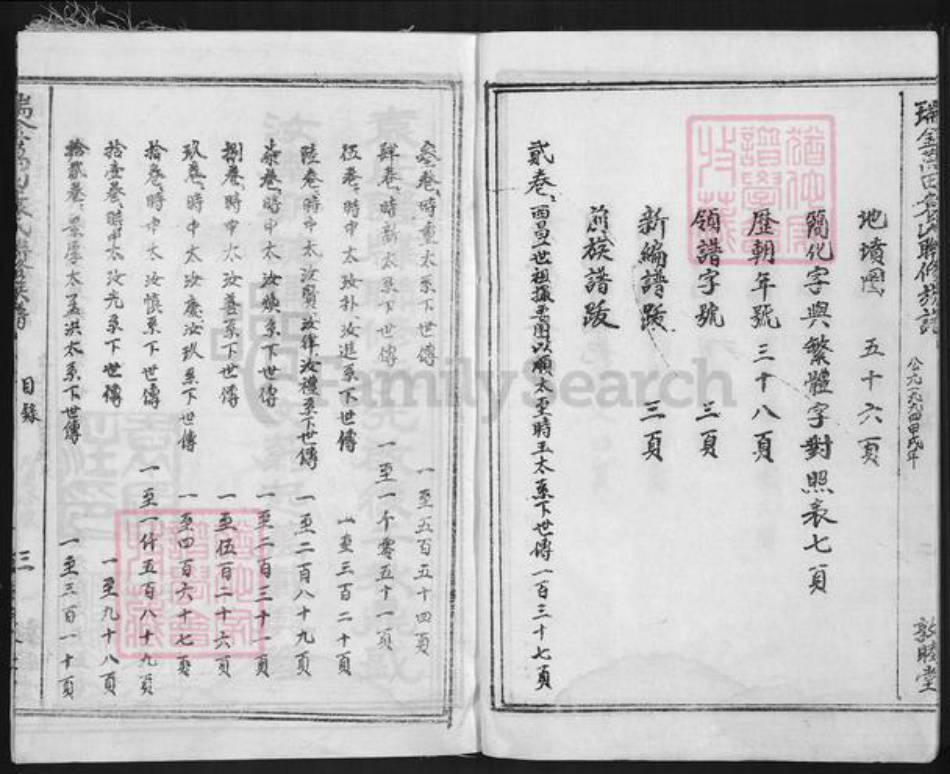 公元一九九四甲戌年
敦睦堂
地墳圖 五十六頁
簡化字與繁體字對照表七頁
歷朝年號 三十八頁
領譜字號 三頁
新編譜跋 三頁
前族譜跋
貳卷、西昌世祖振秀圖以順太至時玉太系下世傳一百三十七頁
叁卷、時重太系下世傳 一至五百五十四頁
肆卷、時新太系下世傳 一至一千零五十一頁
伍卷、時中太汝朴、汝進系下世傳 一至三百二十頁
陸卷、時中太汝賢、汝律、汝禮系下世傳 一至二百八十九頁
柒卷、時中太汝煥系下世傳 一至二百三十一頁
捌卷、時中太汝蓋系下世傳 一至伍百二十六頁
玖卷、時中太汝慶汝玖系下世傳 一至四百六十七頁
拾卷、時中太汝慎系下世傳 一至一仟五百八十九頁
拾壹卷、時中太汝光系下世傳 一至九十八頁
拾貳卷、太孟洪太系下世傳 一至三百一十頁
目錄
三
FamilySearch